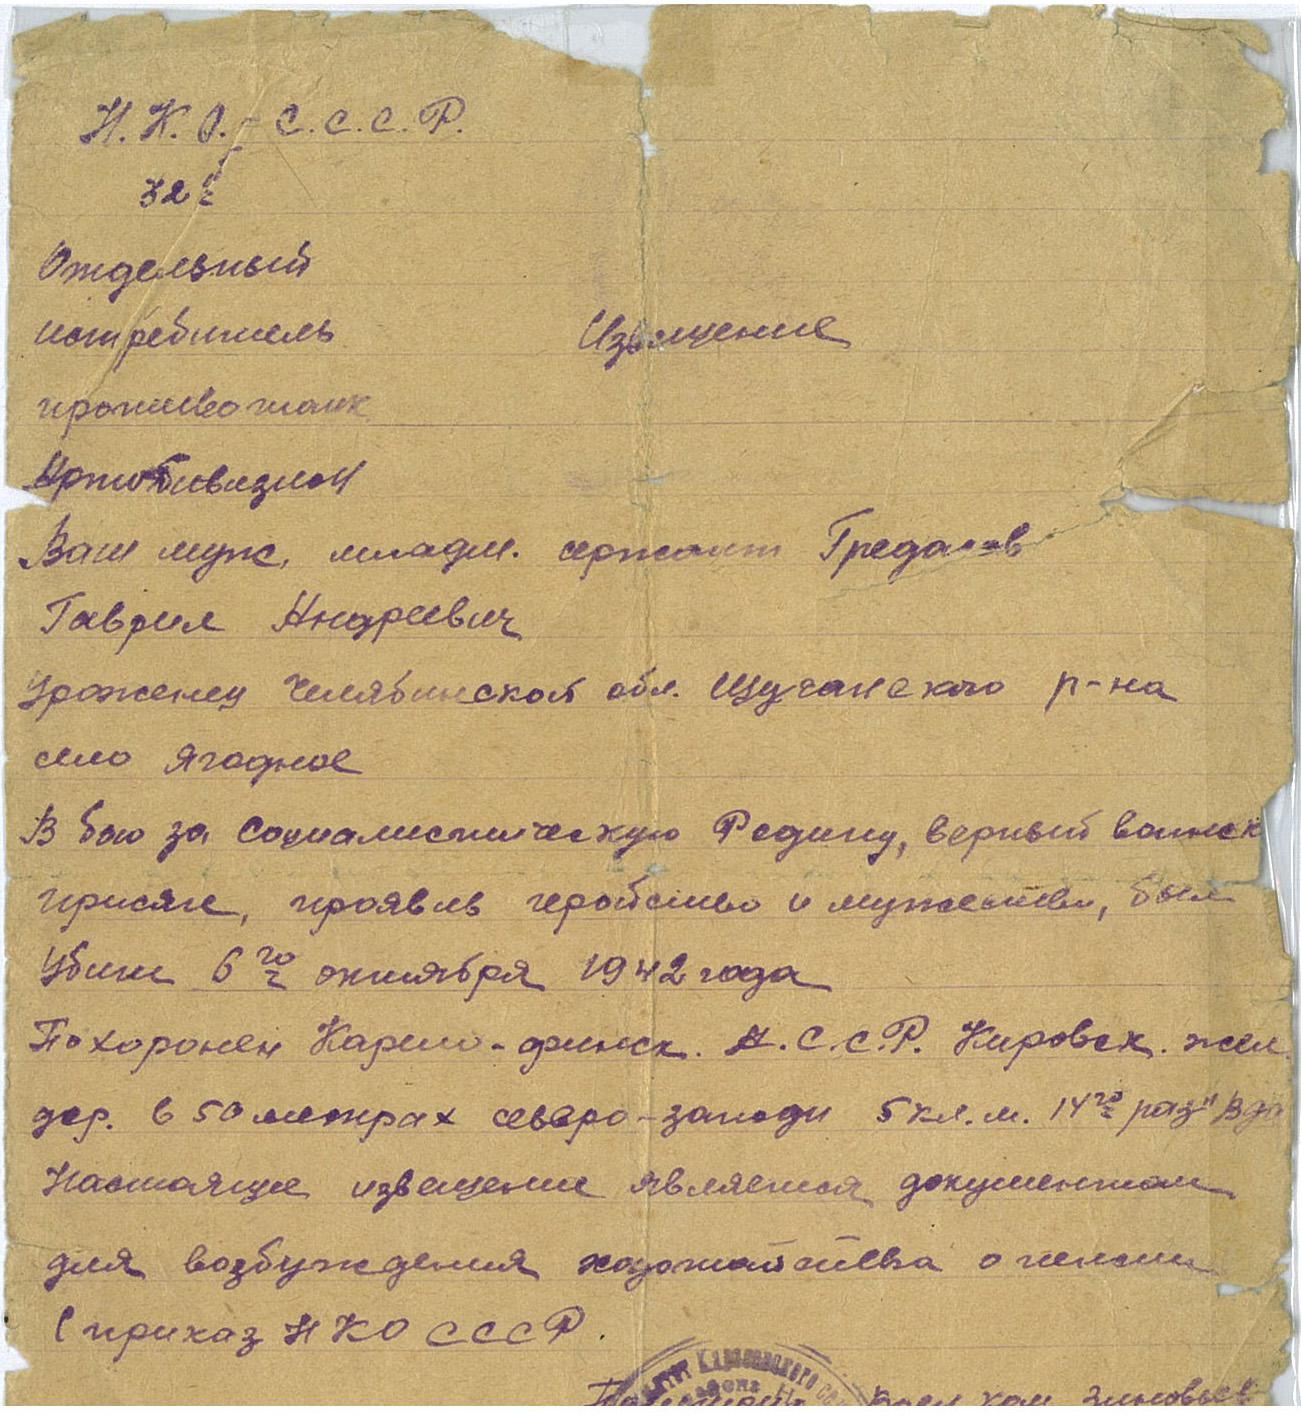 Н.К.О. - С.С.С.Р.
32й
Отдельный
истребитель
противотанк
Артдивизион
Извещение
Ваш муж, младш. сержант
Гаврил Андреевич
Уроженец Челябинской обл. Щучанского р-на
село Ягодное
В бою за Социалистическую Родину, верный воинск
присяге, проявив геройство и мужество, был
Убит 6го октября 1942 года
Похоронен Карело-финск. А.С.С.Р. Кировск. жел.
дор. в 50 метрах северо-западн 5 кл.м. 14го раз"
Настоящие извещение является документом
для возбуждения ходотайства о пенсии
(приказ НКО СССР
Воен ком Зиновьев